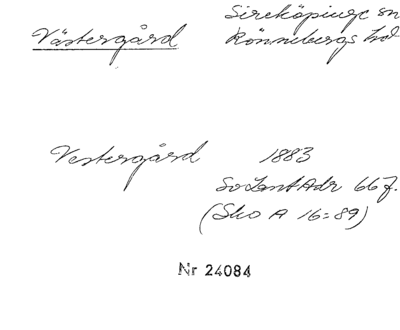 Västergård
Sireköpinge sn
Rönnebergs hd
Vestergård 1883
SvLantAdr 667.
(Sko A 16:89)
Nr 24084